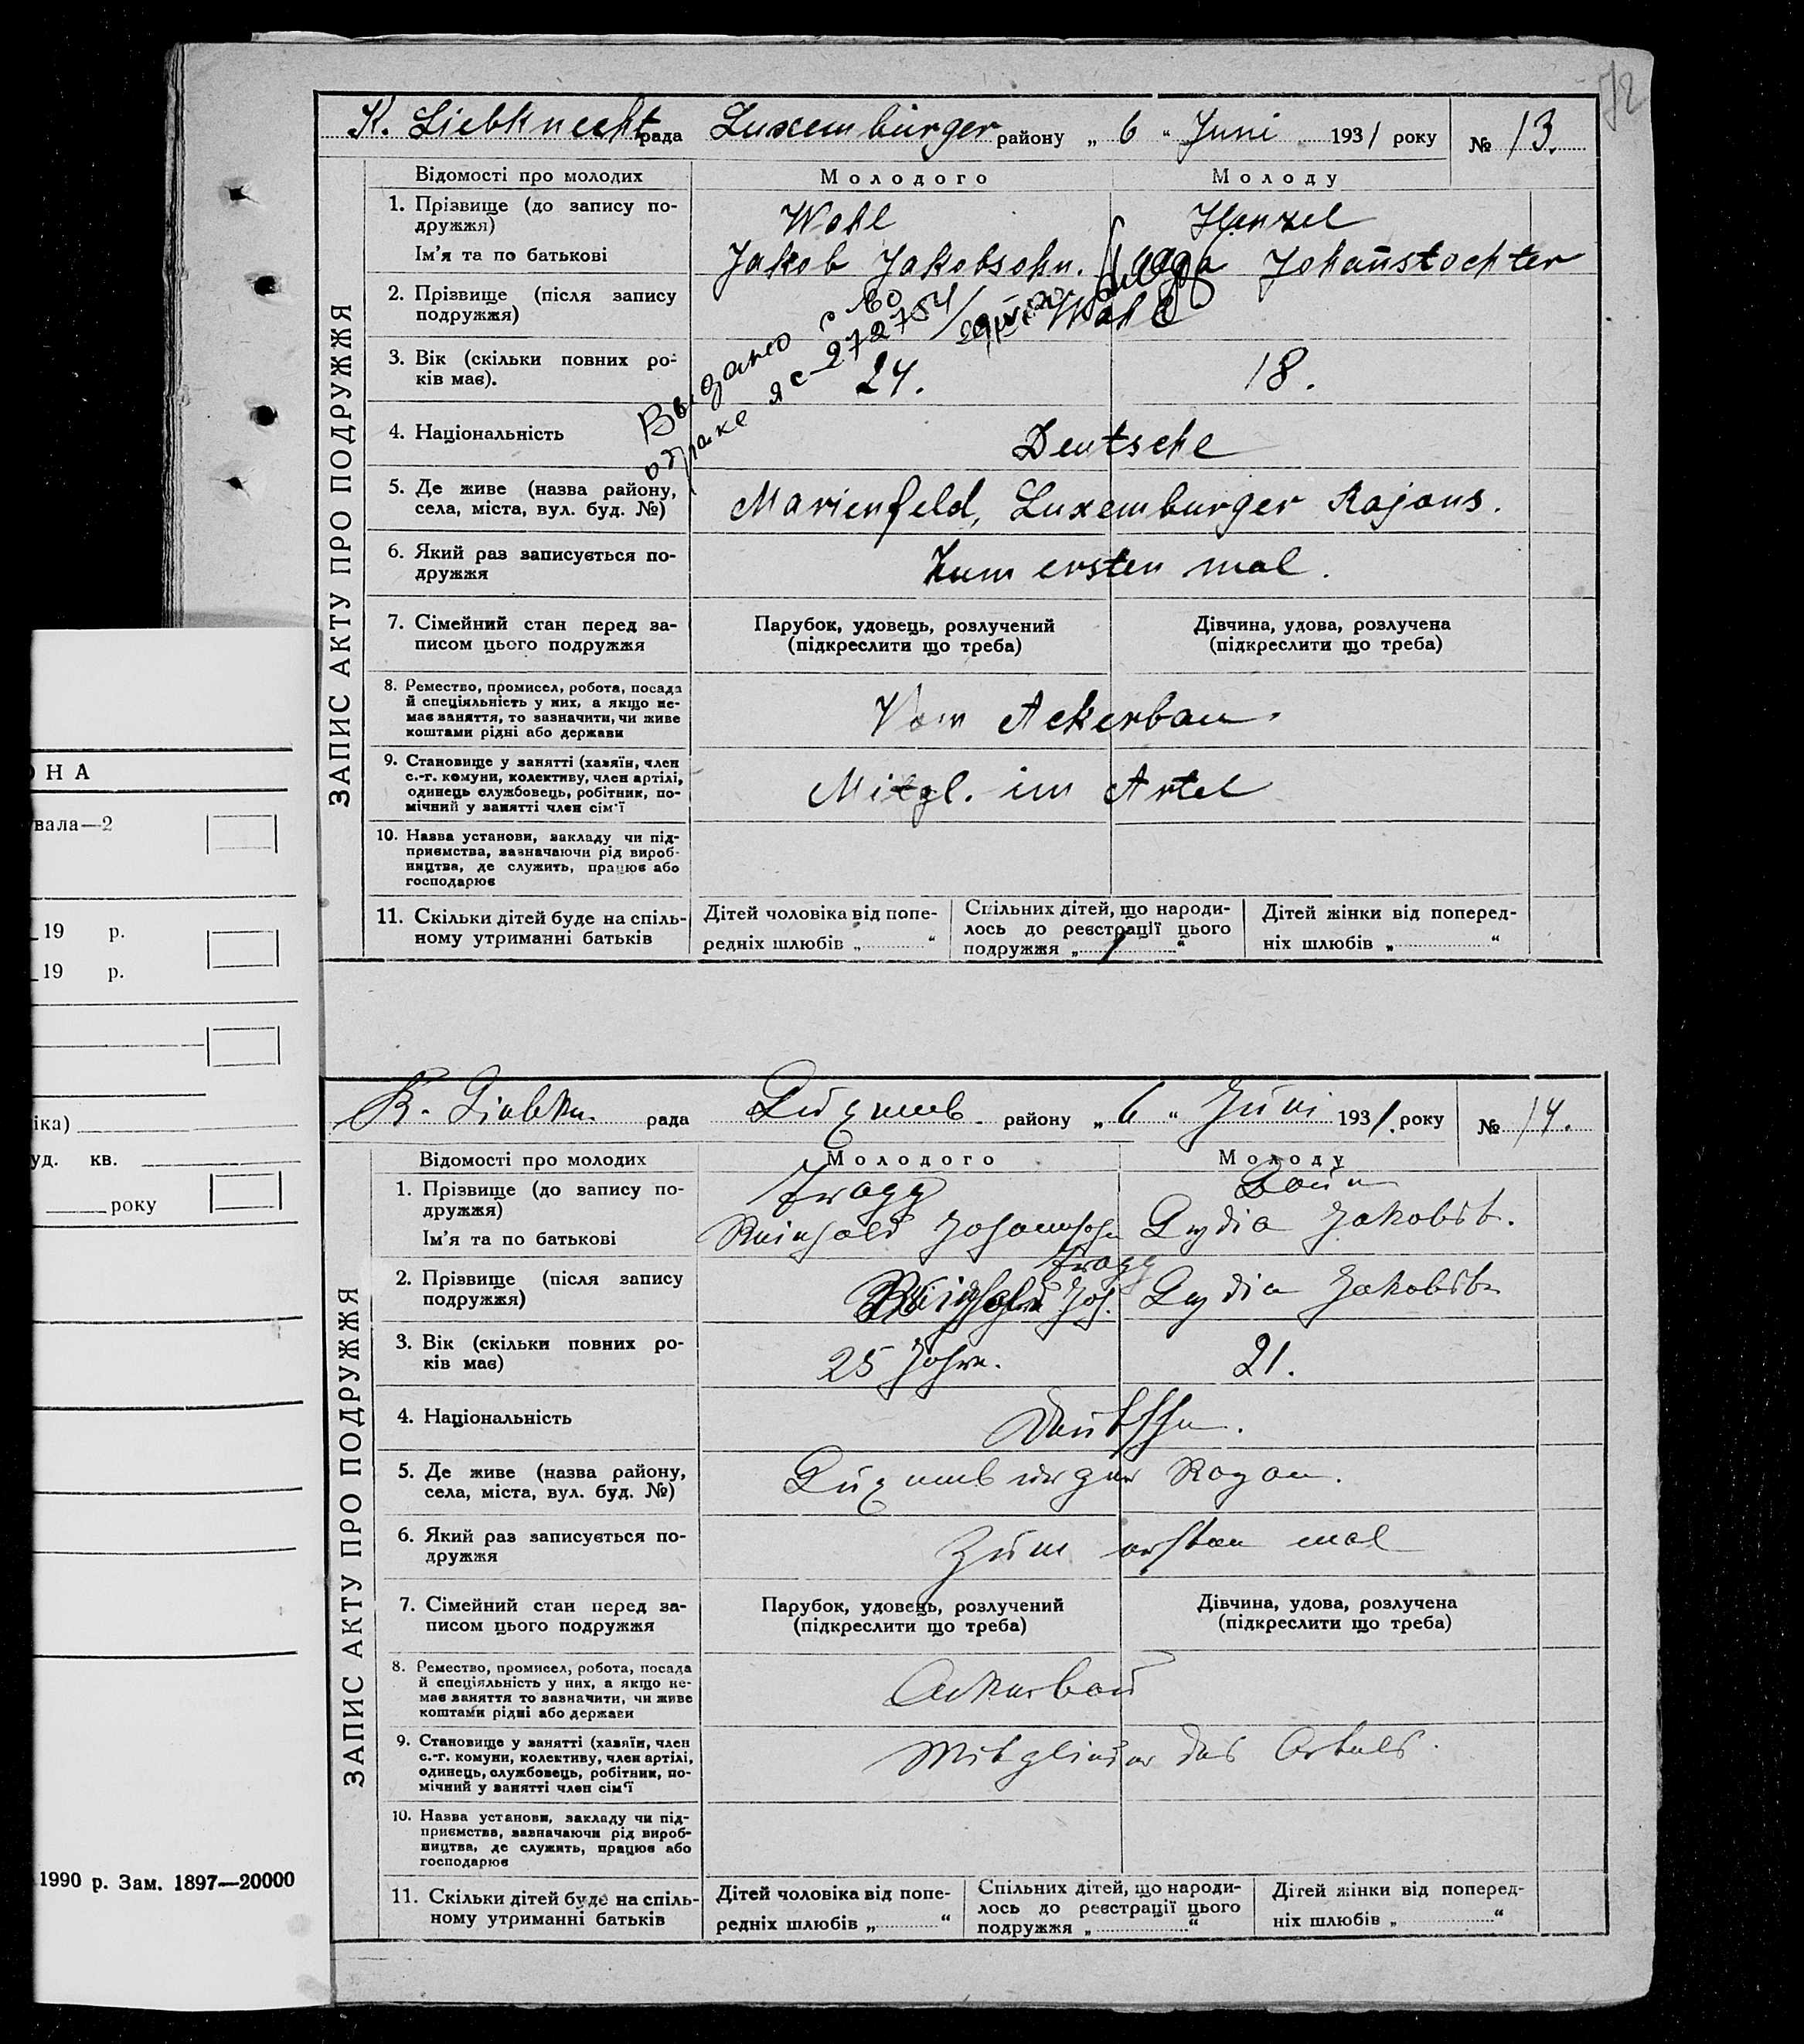 72
K. Liebknecht рада Luxemburger району „ 6 “ Juni 1931 року № 13.
ЗАПИС АКТУ ПРО ПОДРУЖЖЯ
Відомості про молодих Молодого Молоду
1. Прізвище (до запису по-
дружжя)
Wohl Henzel
Ім'я та по батькові Jakob Jakobsohn. Johannstochter
2. Прізвище (після запису
подружжя)
Wohl
Выдано с-во
о браке ЯС-272754
3. Вік (скільки повних ро-
ків має).
24. 18.
4. Національність Deutsche
5. Де живе (назва району,
села, міста, вул. буд. №)
Marienfeld, Luxemburger Rajons.
6. Який раз записується по-
дружжя
Zum ersten mal.
7. Сімейний стан перед за-
писом цього подружжя
Парубок, удовець, розлучений
(підкреслити що треба)
Дівчина, удова, розлучена
(підкреслити що треба)
8. Ремество, промисел, робота, посада
й спеціяльність у них, а якщо не-
має заняття, то зазначити, чи живе
коштами рідні або держави
Vom Ackerbau.
9. Становище у занятті (хазяїн, член
с.-г. комуни, колективу, член артілі,
одинець службовець, робітник, по-
мічний у занятті член сім'ї
Mitgl. im Artel
10. Назва установи, закладу чи під-
приємства, зазначаючи рід вироб-
ництва, де служить, працює або
господарює
11. Скільки дітей буде на спіль-
ному утриманні батьків
Дітей чоловіка від попе-
редніх шлюбів „ “
Спільних дітей, що народи-
лось до реєстрації цього
подружжя „ 1 “
Дітей жінки від поперед-
ніх шлюбів „ “
K. Liebkn. рада Luxemb. району „ 6 “ Juni 1931. року № 14.
ЗАПИС АКТУ ПРО ПОДРУЖЖЯ
Відомості про молодих Молодого Молоду
1. Прізвище (до запису по-
дружжя)
Ім'я та по батькові Reinhold Johannsohn Lydia Jakobst.
2. Прізвище (після запису
подружжя)
Joh. Lydia Jakobst.
3. Вік (скільки повних ро-
ків має)
25 Jahre. 21.
4. Національність Deutsche.
5. Де живе (назва району,
села, міста, вул. буд. №)
Luxemburger Rayon.
6. Який раз записується по-
дружжя
Zum ersten mal
7. Сімейний стан перед за-
писом цього подружжя
Парубок, удовець, розлучений
(підкреслити що треба)
Дівчина, удова, розлучена
(підкреслити що треба)
8. Ремество, промисел, робота, посада
й спеціяльність у них, а якщо не-
має заняття то зазначити, чи живе
коштами рідні або держави
Ackerbau
9. Становище у занятті (хазяїн, член
с.-г. комуни, колективу, член артілі,
одинець, службовець, робітник, по-
мічний у занятті член сім'ї
Mitglieder des Artels.
10. Назва установи, закладу чи під-
приємства, зазначаючи рід вироб-
ництва, де служить, працює або
господарює
11. Скільки дітей буде на спіль-
ному утриманні батьків
Дітей чоловіка від попе-
редніх шлюбів „ “
Спільних дітей, що народи-
лось до реєстрації цього
подружжя „ “
Дітей жінки від поперед-
ніх шлюбів „ “
ОНА
вала—2
19 р.
19 р.
іка)
уд. кв.
року
1990 р. Зам. 1897—20000